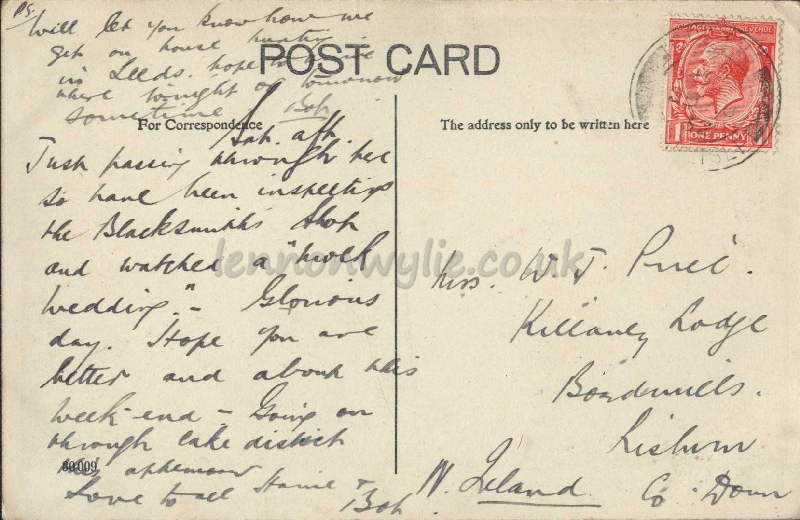 PS.
Will let you know how we
get on house hunting
in Leeds. hope to
there tonight or tomorrow
sometime. Bob
POST CARD
For Correspondence
The address only to be written here
POSTAGE REVENUE
ONE PENNY
Sat. aft.
Just passing through here
so have been inspecting
the Blacksmith's Shop
and watched a "mock
wedding." - Glorious
day. Hope you are
better and about this
week-end - Going on
through lake district
this afternoon
Love to all &
Bob
30009
Mrs. W. J.
Killaney Lodge
Boardmills.
Lisburn
N. Ireland Co Down
lennonwylie.co.uk